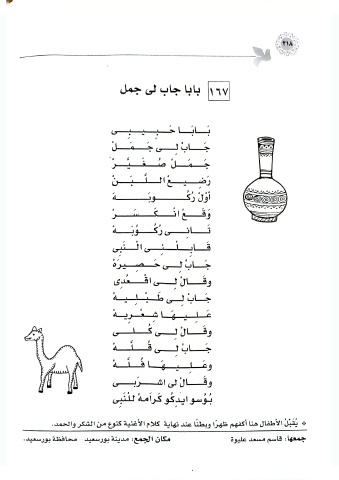 ٢١٨
١٦٧ بابا جاب لى جمل
بَـابَـا حَـبِـيـبِـى
جَـابْ لِـى جَـمَـلْ
جَـمَـلْ صُـغَـيَّـرْ
رَضِـيـعْ الـلَّـبَـنْ
أوّلْ رُكُـوبَـةْ
وِقِـعْ انْـكَـسَـرْ
تَـانِـى رُكُـوبَـةْ
قَـابِـلْـنِـى الـنَّـبِى
جَـابْ لِـى حَـصِـيـرَةْ
وِقَـالْ لِـى اقْـعُـدِى
جَـابْ لِـى طَـبْـلِـيَّـةْ
عَـلِـيـهَـا شِـعْـرِيَّـةْ
وِقَـالْ لِـى كُـلِـى
جَـابْ لِـى قُـلَّـةْ
وِعَـلِـيـهَـا فُـلَّـةْ
وِقَـالْ لِى اشْـرَبِـى
بُوسُو ايدِكُو كَرَامَةْ لِلنَّبِى
※ يُقَبِّلُ الأطفال هنا أكفهم ظهرًا وبطنًا عند نهاية كلام الأغنية كنوع من الشكر والحمد.
جمعها: قاسم مسعد عليوة مكان الجمع: مدينة بورسعيد - محافظة بورسعيد.